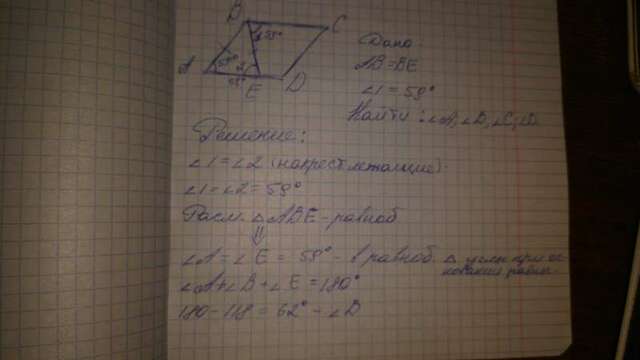 B
C
1 59°
A
59°
2
59°
E
D
Дано
AB=BE
∠1=59°
Найти: ∠A, ∠B, ∠C, ∠D.
Решение:
∠1=∠2 (накрест лежащие).
∠1=∠2=59°
Расм. △ABE-равноб
⇓
∠A=∠E=59°-в равноб. △ углы при ос
нования равны.
∠A+∠B+∠E=180°
180-118=62°-∠B